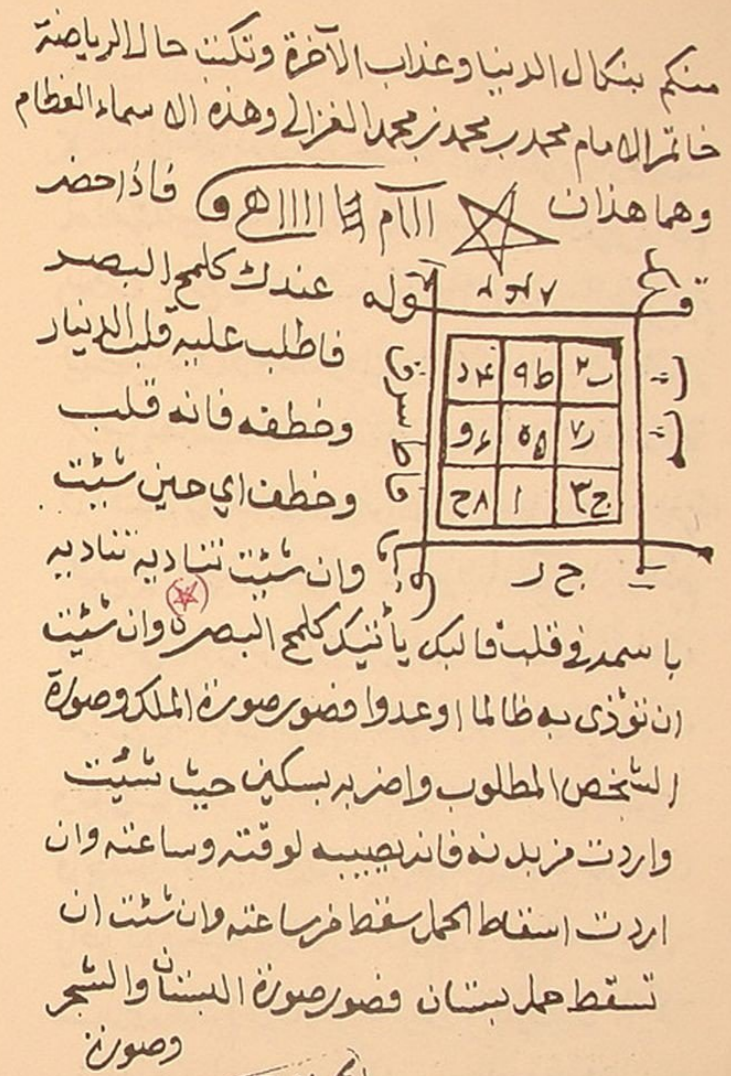 منكم بنكال الدنيا وعذاب الآخرة وتكتب حال الرياضة
خاتم الامام محمد بن محمد بن محمد الغزالي وهذه الاسماء العظام
وهما هذان فاذا حضر
عندك كلمح البصر
فاطلب عليه قلب الدينار
وخطفه فانه قلب
وخطف اي حين شيت
وان شيت تناديه تناديه
قوله
د٤ ط٩ ب٢
و٦ ه٥ ز٧
ح٨ ا ج٣
باسمه في قلبك يأتيك كلمح البصر وان شيت
ان تؤذى به ظالما اوعدوا فصور صورة الملك وصورة
الشخص المطلوب واضربه بسكين حيث شيت
واردت من بدنه فانه يصيبه لوقته وساعته وان
اردت اسقاط الحمل سقط من ساعته وان شئت ان
تسقط حمل بستان فصور صورة البستان والشجر
وصورة